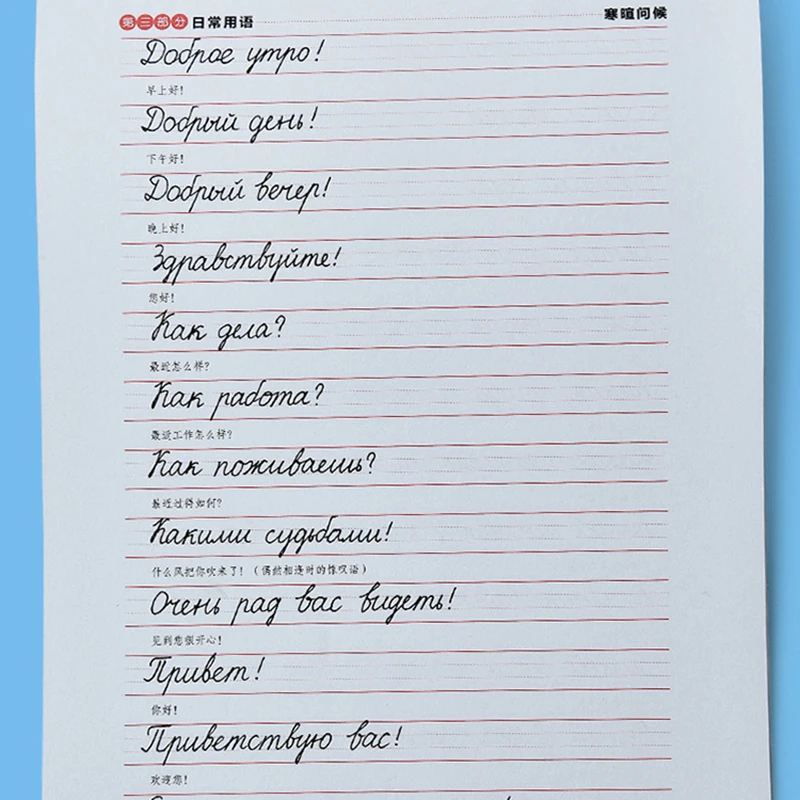 第三部分 日常用语 寒暄问候
Доброе утро!
早上好!
Добрый день!
下午好!
Добрый вечер!
晚上好!
Здравствуйте!
您好!
Как дела?
最近怎么样?
Как работа?
最近工作怎么样?
Как поживаешь?
最近过得如何?
Какими судьбами!
什么风把你吹来了!(偶然相逢时的惊叹语)
Очень рад вас видеть!
见到您很开心!
Привет!
你好!
Приветствую вас!
欢迎您!